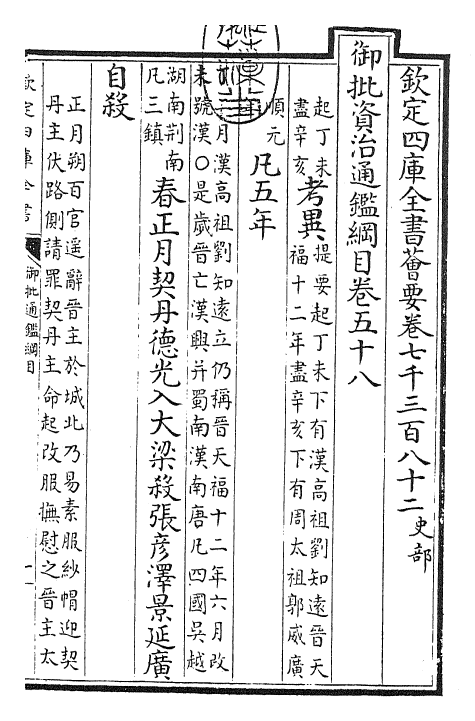 欽定四庫全書薈要卷七千三百八十二 史部
御批資治通鑑綱目卷五十八
起丁未
盡辛亥
考異
提要起丁未下有漢高祖劉知遠晉天
福十二年盡辛亥下有周太祖郭威廣
順元
凡五年
二月漢高祖劉知遠立仍稱晉天福十二年六月改
未號漢○是歲晉亡漢興并蜀南漢南唐凡四國吳越
湖南荆南
凡三鎮
春正月契丹德光入大梁殺張彥澤景延廣
自殺
正月朔百官遥辭晉主於城北乃易素服紗帽迎契
丹主伏路側請罪契丹主命起改服撫慰之晉主太
欽定四庫全書
御批通鑑綱目